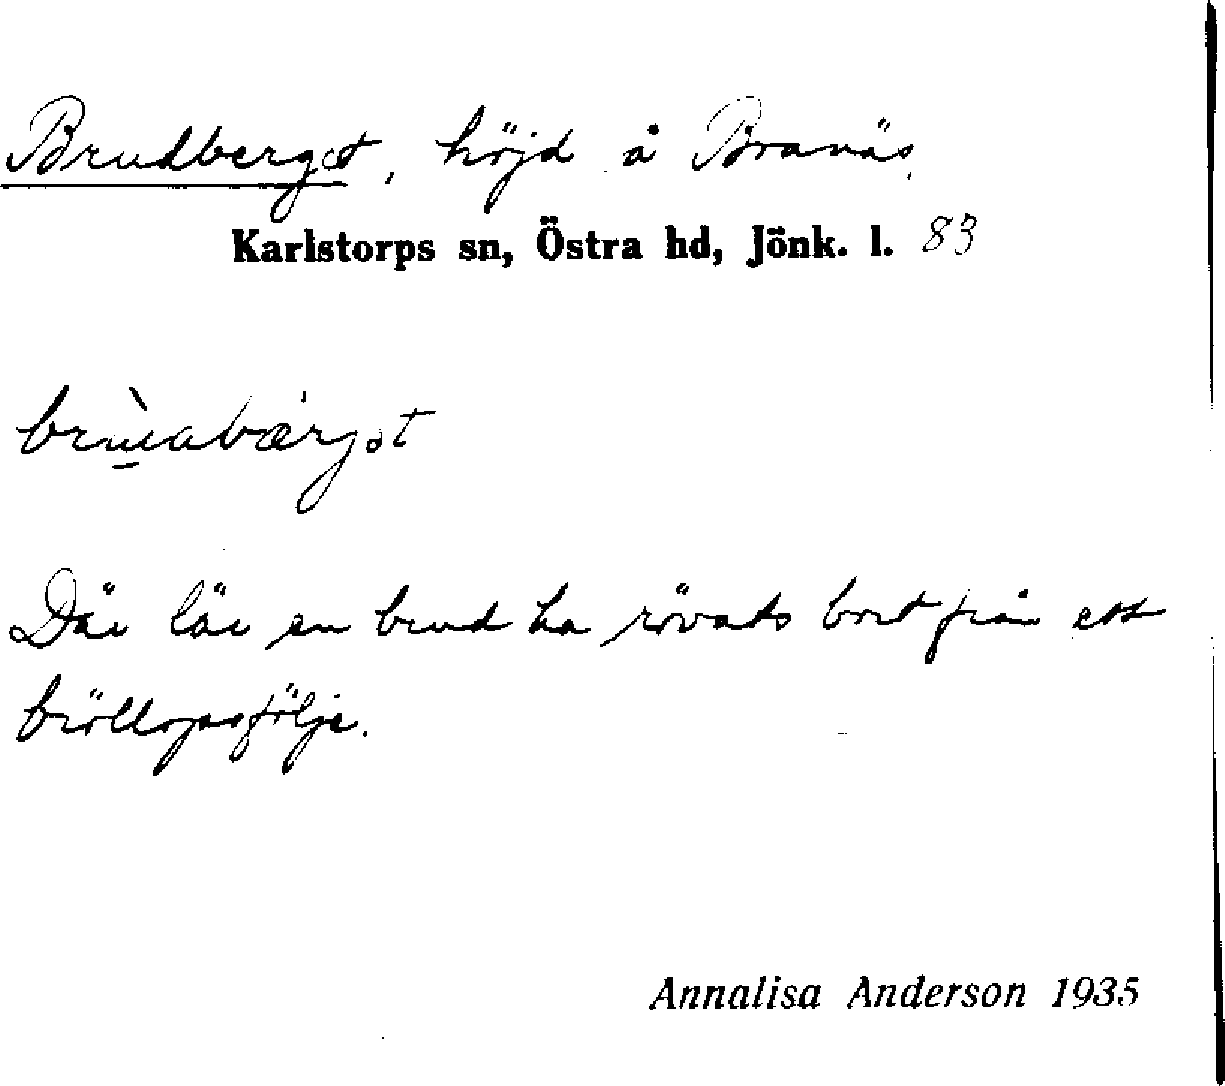 Brudberget, höjd å Branäs,
Karlstorps sn, Östra hd, Jönk. l. 83
brùabærjət
Där lär en brud ha rövats bort från ett
bröllopsfölje.
Annalisa Anderson 1935